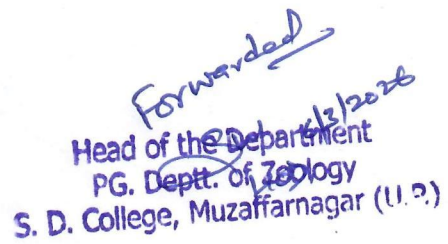 Forwarded
Head of the Department
PG. Deptt. of Zoology
S. D. College, Muzaffarnagar (U.P.)